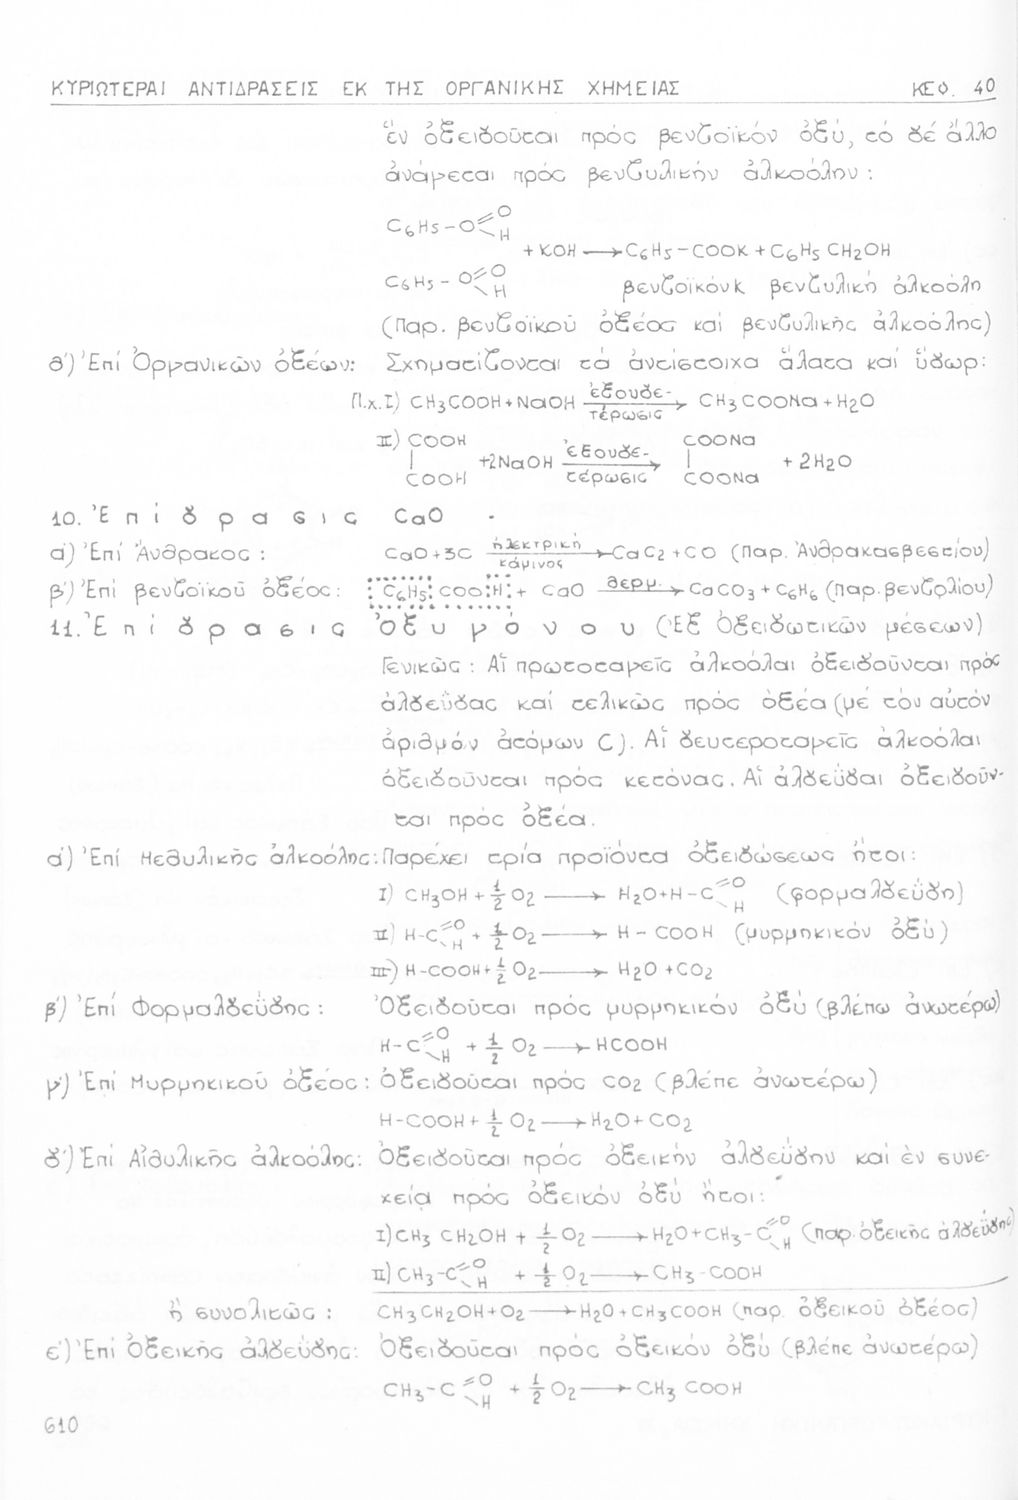 ΚΥΡΙΩΤΕΡΑΙ ΑΝΤΙΔΡΑΣΕΙΣ ΕΚ ΤΗΣ ΟΡΓΑΝΙΚΗΣ ΧΗΜΕΙΑΣ ΚΕΦ. 40
ἕν ὀξειδοῦται πρός βενζοϊκόν ὀξύ, τό δέ ἄλλο
ἀνάγεται πρός βενζυλικήν ἀλκοόλην :
C6H5-O=O
H
+ KOH ⟶ C6H5-COOK + C6H5 CH2OH
C6H5 - O=O
H
βενζοϊκόν K βενζυλική ἀλκοόλη
(Παρ. βενζοϊκοῦ ὀξέος καί βενζυλικῆς ἀλκοόλης)
θ') Ἐπί Ὀργανικῶν ὀξέων: Σχηματίζονται τά ἀντίστοιχα ἅλατα καί ὕδωρ:
Π.χ. I) CH3COOH + NaOH ἐξουδε-τέρωσις ⟶ CH3COONa + H2O
II) COOH | COOH +2NaOH ἐξουδε-τέρωσις ⟶ COONa | COONa + 2H2O
10. Ἐπίδρασις CaO .
α') Ἐπί Ἄνθρακος : CaO+3C ἠλεκτρική κάμινος ⟶ CaC2 + CO (Παρ. Ἀνθρακασβεστίου)
β') Ἐπί βενζοϊκοῦ ὀξέος: C6H5 COO H + CaO θερμ. ⟶ CaCO3 + C6H6 (Παρ. βενζολίου)
11. Ἐπίδρασις Ὀξυγόνου (Ἐξ Ὀξειδωτικῶν μέσων)
Γενικῶς : Αἱ πρωτοταγεῖς ἀλκοόλαι ὀξειδοῦνται πρός
ἀλδεΰδας καί τελικῶς πρός ὀξέα (μέ τόν αὐτόν
ἀριθμόν ἀτόμων C). Αἱ δευτεροταγεῖς ἀλκοόλαι
ὀξειδοῦνται πρός κετόνας. Αἱ ἀλδεΰδαι ὀξειδοῦν-
ται πρός ὀξέα.
α') Ἐπί Μεθυλικῆς ἀλκοόλης: Παρέχει τρία προϊόντα ὀξειδώσεως ἤτοι:
I) CH3OH + 1/2 O2 ⟶ H2O+H-C=O H (φορμαλδεΰδη)
II) H-C=O H + 1/2 O2 ⟶ H - COOH (μυρμηκικόν ὀξύ)
III) H-COOH + 1/2 O2 ⟶ H2O + CO2
β') Ἐπί Φορμαλδεΰδης : Ὀξειδοῦται πρός μυρμηκικόν ὀξύ (βλέπω ἀνωτέρω)
H-C=O H + 1/2 O2 ⟶ HCOOH
γ') Ἐπί Μυρμηκικοῦ ὀξέος : Ὀξειδοῦται πρός CO2 (βλέπε ἀνωτέρω)
H-COOH + 1/2 O2 ⟶ H2O + CO2
δ') Ἐπί Αἰθυλικῆς ἀλκοόλης: Ὀξειδοῦται πρός ὀξεικήν ἀλδεΰδην καί ἐν συνε-
χείᾳ πρός ὀξεικόν ὀξύ ἤτοι:
I) CH3 CH2OH + 1/2 O2 ⟶ H2O + CH3-C=O H (παρ. ὀξεικῆς ἀλδεΰδης)
II) CH3-C=O H + 1/2 O2 ⟶ CH3-COOH
ἤ συνολικῶς : CH3CH2OH+O2 ⟶ H2O + CH3COOH (παρ. ὀξεικοῦ ὀξέος)
ε') Ἐπί Ὀξεικῆς ἀλδεΰδης: Ὀξειδοῦται πρός ὀξεικόν ὀξύ (βλέπε ἀνωτέρω)
CH3-C=O H + 1/2 O2 ⟶ CH3 COOH
610